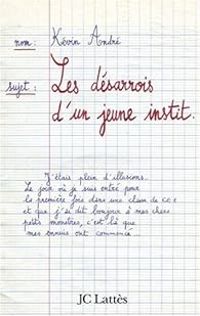 nom : Kévin André
sujet : Les désarrois
d'un jeune instit.
J'étais plein d'illusions.
Le jour où je suis entré pour
la première fois dans une classe de CE1
et que j'ai dit bonjour à mes chers
petits monstres, c'est là que
mes ennuis ont commencé
JC Lattès